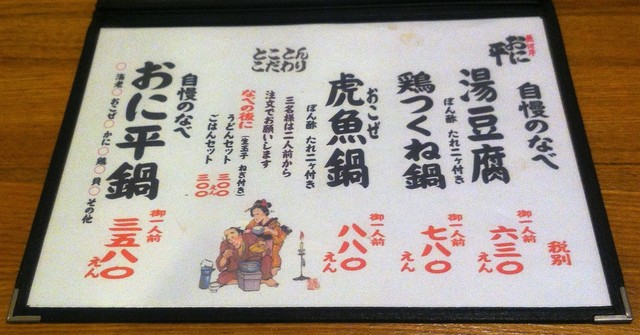 長浜
おに平
自慢のなべ
税別
湯豆腐
御一人前
六三〇えん
ぽん酢 たれ二ヶ付き
鶏つくね鍋
御一人前
七八〇えん
とことん
こだわり
おこぜ
虎魚鍋
御一人前
八八〇えん
ぽん酢 たれ二ヶ付き
三名様は二人前から
注文でお願いします
なべの後に(生玉子 ねぎ付き)
うどんセット 三〇〇えん
ごはんセット 三〇〇
自慢のなべ
おに平鍋
御一人前
三五八〇えん
○海老○おこぜ○かに○鶏○貝○その他